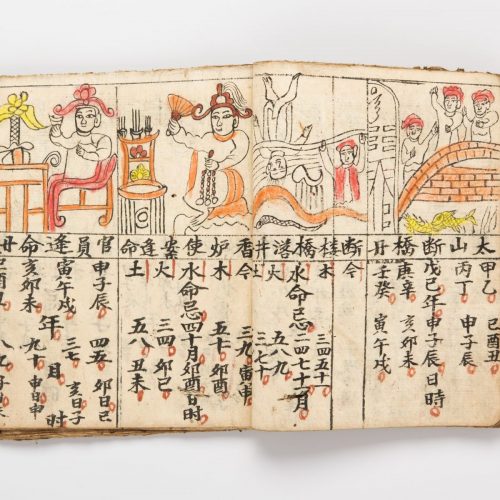 太山
断橋
断
橋落井
香炉使案逢命
官員逢命
甲乙
酉丑
丙丁 申子辰
戊己年申子辰日時
庚辛 亥卯未
壬癸 寅午戌
木 三四五十
水命忌二四七十一月
火 五八九
土 三七十
三九寅申
木 五七十 卯酉
水命忌四十月卯酉日时
火 三四 卯巳
土 五八 丑未
申子辰 四五 卯巳日
寅午戌 三七 亥日子
年 时
亥卯未 九十 申日申
酉丑